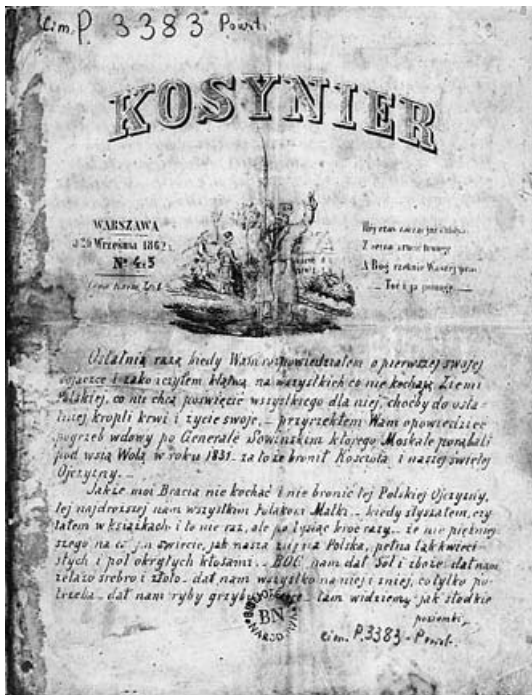 Cim. P. 3383 Powst.
KOSYNIER
WARSZAWA
d 29 Września 1862 r.
Nº 4 i 5
A Bóg rzeknie
Toć i ja pomogę
Ostatnią razą kiedy Wam rozpowiedziałem o pierwszej swojej
i zakończyłem klątwą na wszystkich co nie kochają Ziemi
Polskiej, co nie chcą poświęcić wszystkiego dla niej, choćby do osta-
tniej kropli krwi i życie swoje, – przyrzekłem Wam opowiedzieć
pogrzeb wdowy po Generale Sowińskim którego Moskale porąbali
pod wsią Wolą w roku 1831 – za to że bronił Kościoła i naszej świętej
Ojczyzny. –
Jakże moi Bracia nie kochać i nie bronić tej Polskiej Ojczyzny,
tej najdroższej nam wszystkim Polakom Matki – kiedy słyszałem, czy-
tałem w książkach i to nie raz, ale po tysiąc kroć razy – że nie piękniej-
szego na świecie, jak nasza Polska, pełna łąk kwieci-
stych i pól okrytych kłosami – BOG nam dał Sól i zboże dał nam
żelazo srebro i złoto – dał nam wszystko na niej i z niej, co tylko po-
trzeba – dał nam ryby grzyby – tam widziemy jak słodkie
poziomki,
BIBLIOTEKA NARODOWA
BN
Cim. P. 3383 – Powst.